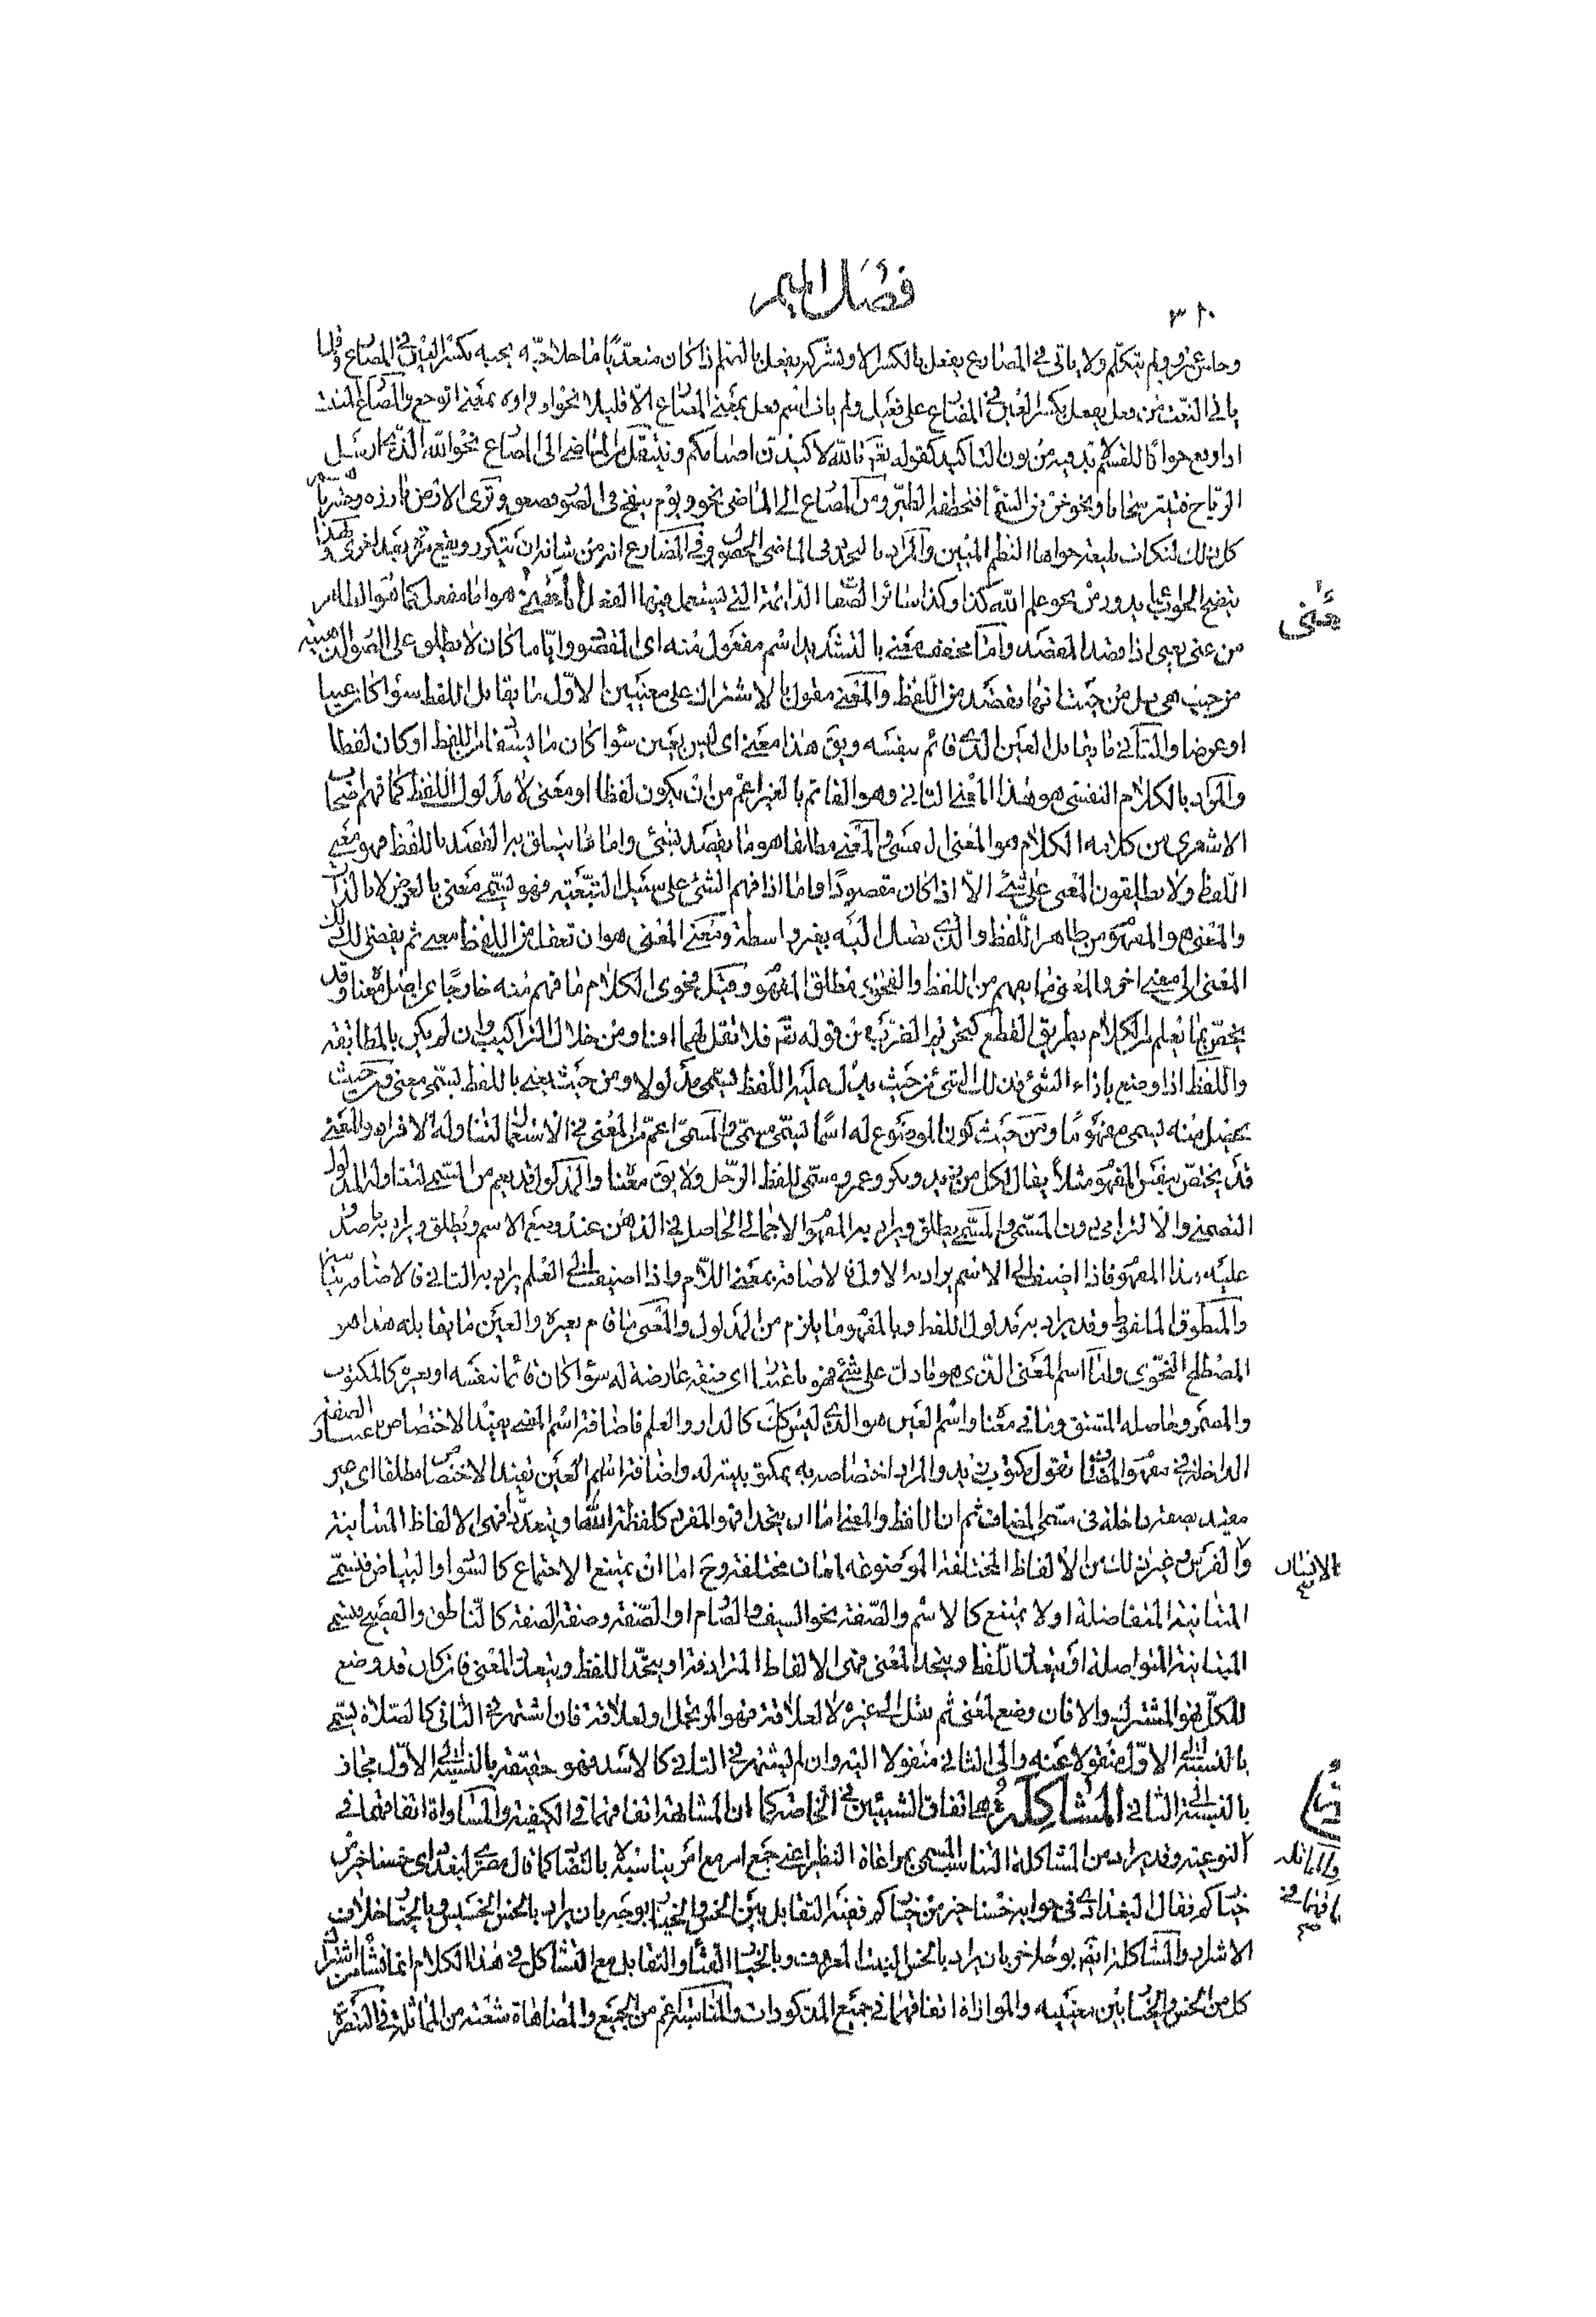 فصل الميم
٣١٠
وجاء عمرو ولم يتكلم ولا ياتى فى المضارع يفعل بالكسر الا ويشركه يفعل بالضم اذا كان متعديا ما خلا حبه يحبه بكسر العين فى المضارع وقلما
ياتى النعت من فعل يفعل بكسر العين فى المضارع على فعيل ولم يات اسم فعل بمعنى المضارع الا قليلا نحو اف واوه بمعنى اتوجع والمضارع المثبت
اذا وقع جوابا للقسم لا بد فيه من نون التاكيد كقوله تعالى تالله لاكيدن اصنامكم وينتقل من الماضى الى المضارع نحو الله الذى ارسل
الرياح فتثير سحابا ونحو خر من السماء فتخطفه الطير ومن المضارع الى الماضى نحو ويوم ينفخ فى الصور فصعق وترى الارض بارزة وحشرناهم
كل ذلك لنكات بليغة حواها النظم المبين والمراد بالتجدد فى الماضى الحصول وفى المضارع انه من شانه ان يتكرر ويقع مرة بعد اخرى وبهذا
يتضح الجواب عما يورد من نحو علم الله كذا وكذا سائر الصفات الدائمة التى يستعمل فيها الفعل المعنى هو اما مفعل كما هو الظاهر
معنى
من عنى يعنى اذا قصد المقصد واما مخفف معنى بالتشديد اسم مفعول منه اى المقصود وايا ما كان لا يطلق على الصور الذهنية
من حيث هى بل من حيث انها تقصد من اللفظ والمعنى مقول بالاشتراك على معنيين الاول ما يقابل اللفظ سواء كان عينا
او عرضا والثانى ما يقابل العين الذى قائم بنفسه ويقال هذا معنى اى ليس بعين سواء كان ما يستفاد من اللفظ او كان لفظا
والمراد بالكلام النفسى هو هذا المعنى الثانى وهو القائم بالغير اعم من ان يكون لفظا او معنى لا مدلول اللفظ كما فهم اصحاب
الاشعرى من كلامه الكلام هو المعنى النفسى والمعنى مطلقا هو ما يقصد بشئ واما ما يتعلق به القصد باللفظ فهو معنى
اللفظ ولا يطلقون المعنى على شئ الا اذا كان مقصودا واما اذا فهم الشئ على سبيل التبعية فهو يسمى معنى بالعرض لا بالذات
والمعنى هو المفهوم من ظاهر اللفظ والذى تصل اليه بغير واسطة ومعنى المعنى هو ان تعقل من اللفظ معنى ثم يفضى لك ذلك
المعنى الى معنى اخر والمعنى ما يفهم من اللفظ والفحوى مطلق المفهوم وقيل فحوى الكلام ما فهم منه خارجا عن اصل معناه وقد
يخص بما يعلم من الكلام بطريق القطع كتحريم الضرب من قوله تعالى فلا تقل لهما اف او من خلال التراكيب وان لم يكن بالمطابقة
واللفظ اذا وضع بازاء الشئ فذلك الشئ من حيث يدل عليه اللفظ يسمى مدلولا ومن حيث يعنى باللفظ يسمى معنى ومن حيث
يحصل منه يسمى مفهوما ومن حيث كون الموضوع له اسما يسمى مسمى والمسمى اعم من المعنى فى الاستعمال لتناوله الافراد والمعنى
قد يختص بنفس المفهوم مثلا يقال لكل من زيد وبكر وعمرو مسمى للفظ الرجل ولا يقال معناه والمدلول قد يعم من المسمى لتناوله المدلول
التضمنى والالتزامى دون المسمى والمسمى يطلق ويراد به المفهوم الاجمالى الحاصل فى الذهن عند وضع الاسم ويطلق ويراد به ما صدق
عليه هذا المفهوم فاذا اضيف الى الاسم يراد به الاول فالاضافة بمعنى اللام واذا اضيف الى العلم يراد به الثانى فالاضافة بيانية
والمنطوق الملفوظ وقد يراد به مدلول اللفظ وبالمفهوم ما يلزم من المدلول والمعنى ما قام بغيره والعين ما يقابله هذا هو
المصطلح النحوى واما اسم المعنى الذى هو ما دل على شئ فهو باعتبار معنى اى صفة عارضة له سواء كان قائما بنفسه او بغيره كالمكتوب
والمضمر وحاصله المشتق وما فى معناه واسم العين هو الذى ليس كذلك كالدار والعلم فاضافة اسم المعنى يفيد الاختصاص باعتبار الصفة
الداخلة فى مفهوم المضاف تقول مكتوب زيد والمراد اختصاصه به بمكتوبيته له واضافة اسم العين تفيد الاختصاص مطلقا اى غير
مقيد بصفة داخلة فى مسمى المضاف ثم ان اللفظ والمعنى اما ان يتحدا فهو المفرد كلفظة الله او يتعددا فهى الالفاظ المتباينة
كالانسان
والفرس وغير ذلك من الالفاظ المختلفة الموضوعة لمعان مختلفة وح اما ان يمتنع الاجتماع كالسواد والبياض فتسمى
المتباينة المتفاضلة او لا يمتنع كالاسم والصفة نحو السيف والصارم او الصفة وصفة الصفة كالناطق والفصيح فتسمى
المتباينة المتواصلة او يتعدد اللفظ ويتحد المعنى فهى الالفاظ المترادفة او يتحد اللفظ ويتعدد المعنى فان كان قد وضع
للكل فهو المشترك والا فان وضع لمعنى ثم نقل الى غيره لا لعلاقة فهو المرتجل او لعلاقة فان اشتهر فى الثانى كالصلاة يسمى
بالنسبة الى الاول منقولا عنه والى الثانى منقولا اليه وان لم يشتهر فى الثانى كالاسد فهو حقيقة بالنسبة الى الاول مجاز
بالنسبة الى الثانى المشاكلة هى اتفاق الشيئين فى الخاصة كما ان المشابهة اتفاقهما فى الكيفية والمساواة اتفاقهما فى
النوعية وقد يراد من المشاكلة التناسب المسمى بمراعاة النظير اعنى جمع امر مع امر يناسبه لا بالتضاد كما قال مصرى لبغدادى خسنا خير من
خياركم فقال البغدادى فى جوابه خسنا خير من خياركم ففيه التقابل بين الخس والخيار بوجه بان يراد بالخس الخسيس وبالخيار خلاف
الاشرار والمشاكلة ايضا بوجه اخر بان يراد بالخس النبت المعروف وبالخيار القثاء والتقابل مع التشاكل فى هذا الكلام انما نشأ من اشتراك
كل من الخس والخيار بين معنييه والموازاة اتفاقهما فى جميع المذكورات والمناسبة اعم من الجميع والمضاهاة شعبة من المماثلة وفى التبصرة